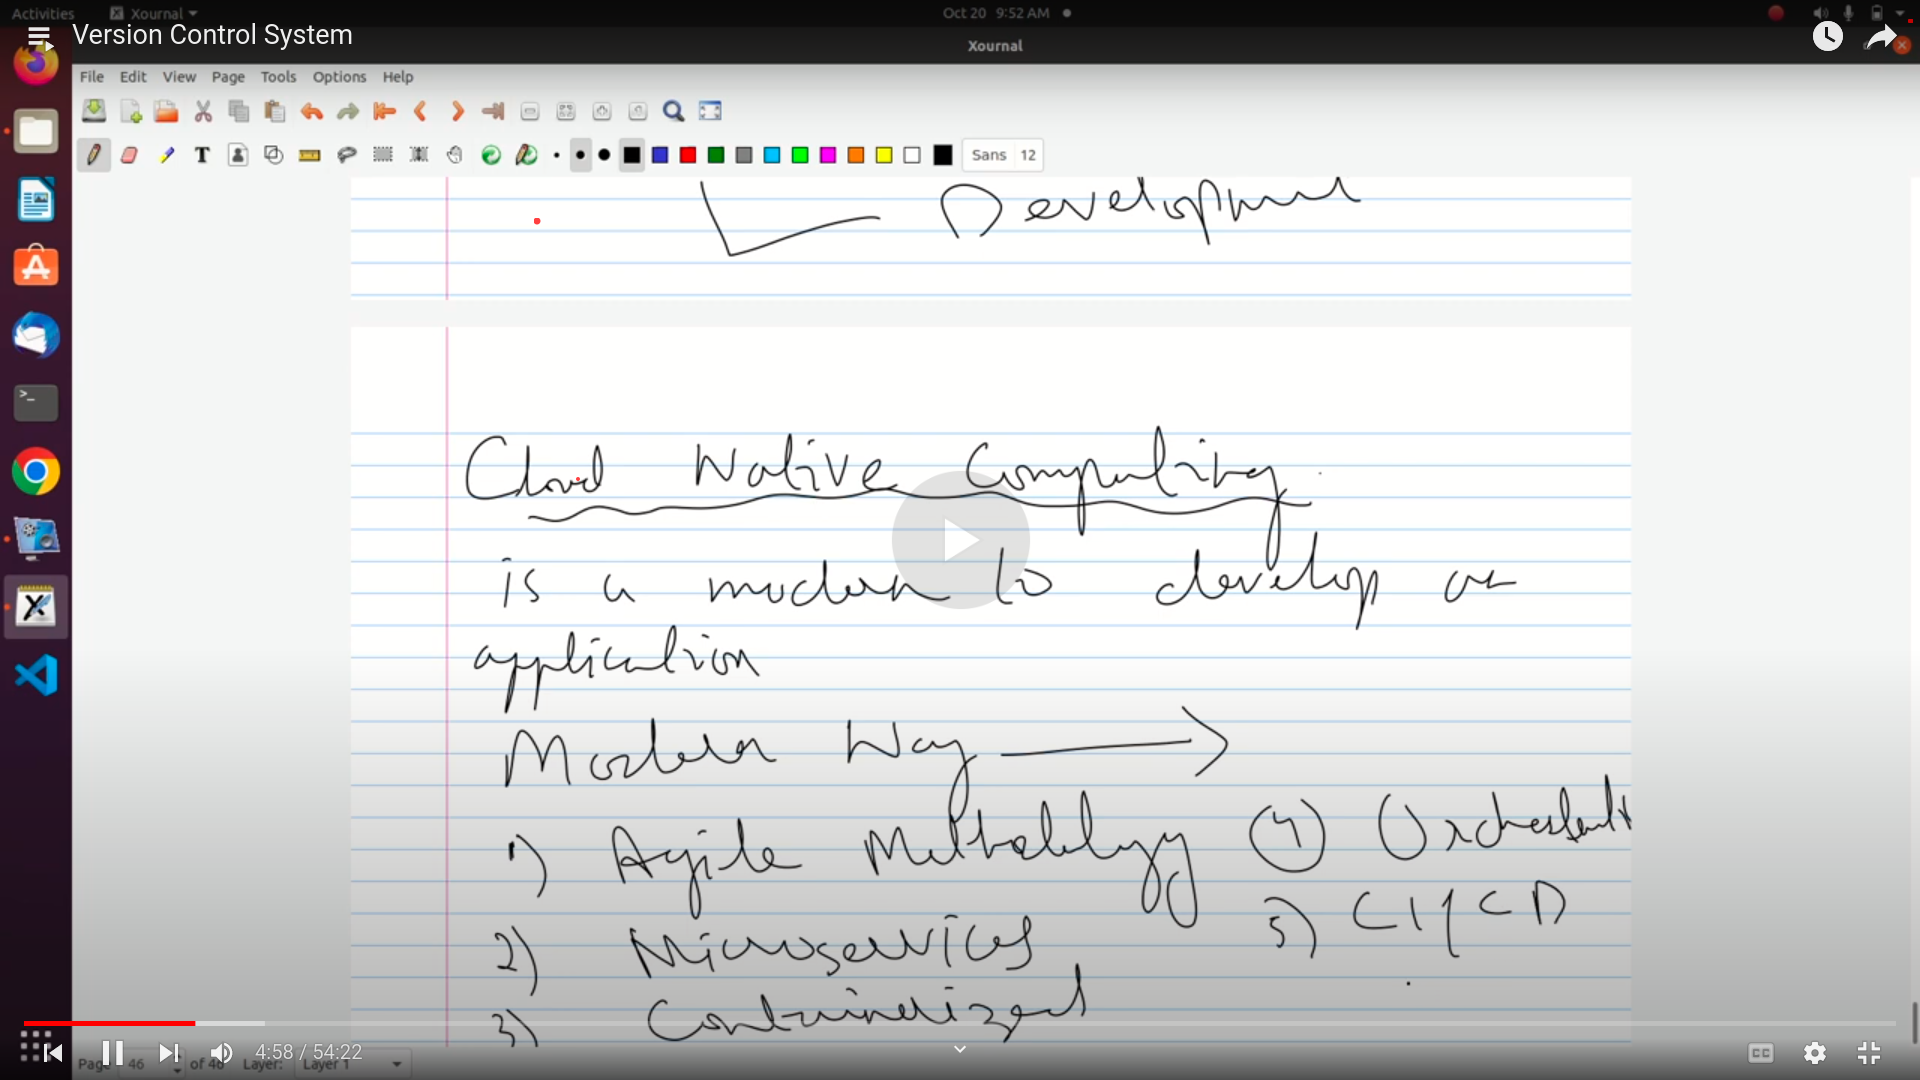 Activities Xournal Oct 20 9:52 AM
Version Control System
Xournal
File Edit View Page Tools Options Help
Sans 12
Development
Cloud Native Computing
is a modern to develop an
application
Modern Way
1) Agile Methodology 4 Orchestrat
2) Microservices 5) CI/CD
3) Containerized
4:58 / 54:22
Page 46 of 46 Layer: Layer 1
CC